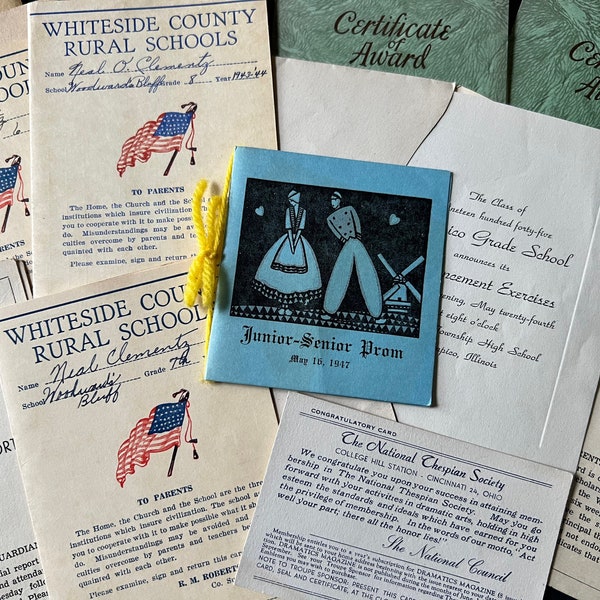 WHITESIDE COUNTY
RURAL SCHOOLS
Name Neal O. Clementz
School Woodward's Bluff Grade 8 Year 1943-'44
TO PARENTS
The Home, the Church and the School
institutions which insure civilization. Th
you to cooperate with it to make possible
do. Misunderstandings may be avoided
culties overcome by parents and teache
quainted with each other.
Please examine, sign and return this
WHITESIDE COUNTY
RURAL SCHOOLS
Name Neal Clementz
School Woodward's Grade 7th
Bluff
TO PARENTS
The Home, the Church and the School are the thre
institutions which insure civilization. The school
you to cooperate with it to make possible what it a
do. Misunderstandings may be avoided and
culties overcome by parents and teachers be
quainted with each other.
Please examine, sign and return this card
R. M. ROBERT
Co. S
Junior-Senior Prom
May 16, 1947
Certificate
of
Award
Ce
The Class of
nineteen hundred forty-five
ico Grade School
announces its
ncement Exercises
ening, May twenty-fourth
t eight o'clock
ownship High School
mpico, Illinois
CONGRATULATORY CARD
The National Thespian Society
COLLEGE HILL STATION - CINCINNATI 24, OHIO
We congratulate you upon your success in attaining mem-
bership in The National Thespian Society. May you go
forward with your activities in dramatic arts, holding in high
esteem the standards and ideas which have earned for you
the privilege of membership. In the words of our motto, 'Act
well your part; there all the honor lies!'
The National Council
Membership entitles you to a year's subscription for DRAMATICS MAGAZINE (8 issues)
NOTE TO TROUPE SPONSOR: PRESENT THIS CARD,
CARD, SEAL AND CERTIFICATE, AT THE